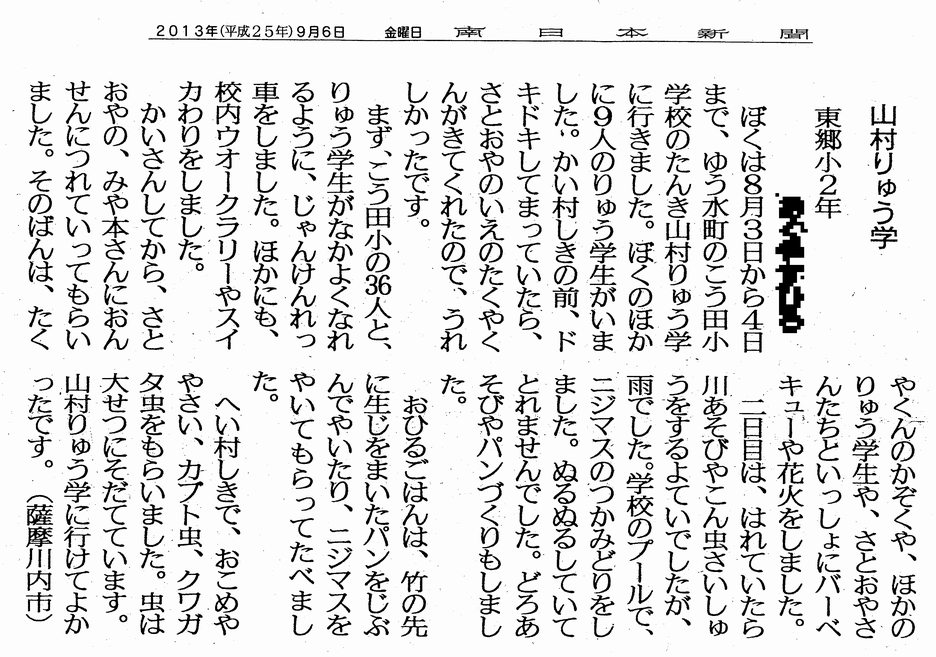 2013年(平成25年)9月6日　金曜日　南日本新聞
山村りゅう学
東郷小2年
ぼくは8月3日から4日
まで、ゆう水町のこう田小
学校のたんき山村りゅう学
に行きました。ぼくのほか
に9人のりゅう学生がいま
した。かい村しきの前、ド
キドキしてまっていたら、
さとおやのいえのたくやく
んがきてくれたので、うれ
しかったです。
まず、こう田小の36人と、
りゅう学生がなかよくなれ
るように、じゃんけんれっ
車をしました。ほかにも、
校内ウオークラリーやスイ
カわりをしました。
かいさんしてから、さと
おやの、みや本さんにおん
せんにつれていってもらい
ました。そのばんは、たく
やくんのかぞくや、ほかの
りゅう学生や、さとおやさ
んたちといっしょにバーベ
キューや花火をしました。
二日目は、はれていたら
川あそびやこん虫さいしゅ
うをするよていでしたが、
雨でした。学校のプールで、
ニジマスのつかみどりをし
ました。ぬるぬるしていて
とれませんでした。どろあ
そびやパンづくりもしまし
た。
おひるごはんは、竹の先
に生じをまいたパンをじぶ
んでやいたり、ニジマスを
やいてもらってたべまし
た。
へい村しきで、おこめや
やさい、カブト虫、クワガ
タ虫をもらいました。虫は
大せつにそだてています。
山村りゅう学に行けてよか
ったです。（薩摩川内市）